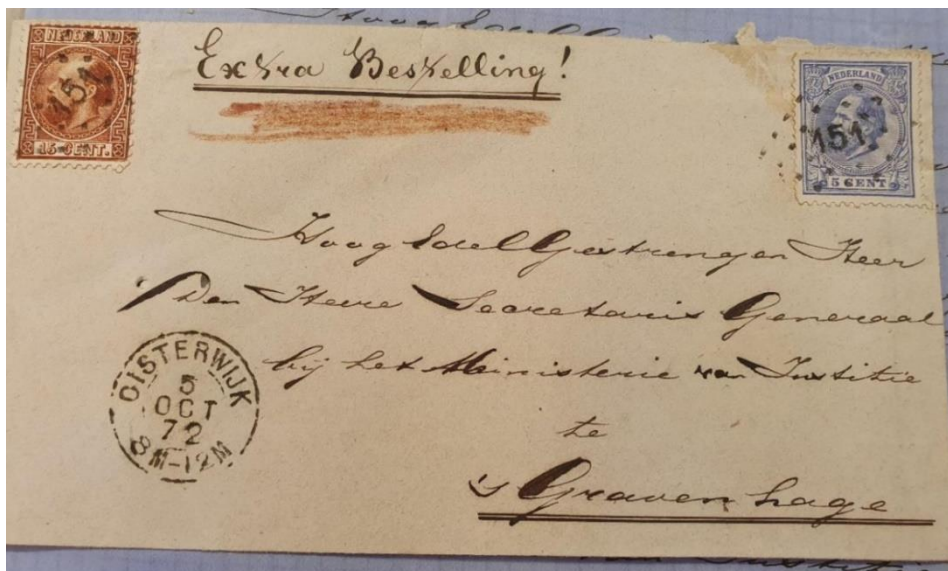 Extra Bestelling!
NEDERLAND
151
15 CENT.
NEDERLAND
151
5 CENT
Hoog Edel Gestrengen Heer
Den Heere Secretaris Generaal
bij het Ministerie van Justitie
te
's Gravenhage
OISTERWIJK
5
OCT
72
8M-12M